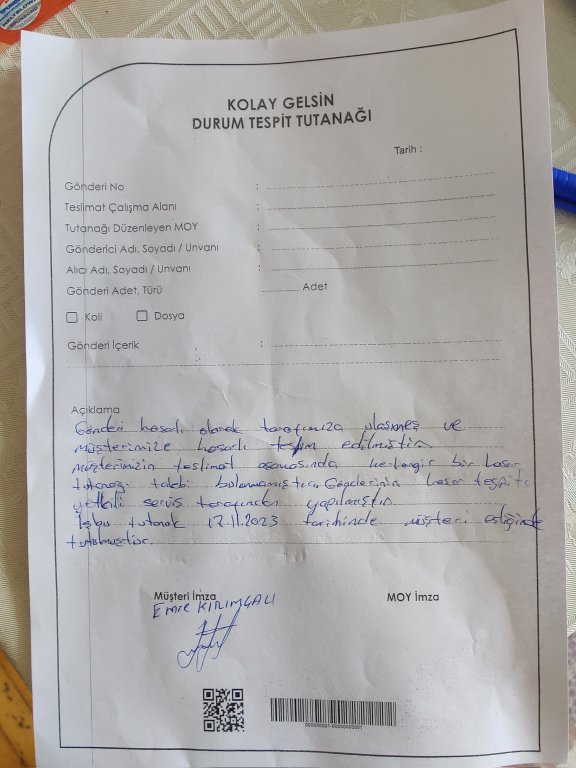 KOLAY GELSİN
DURUM TESPİT TUTANAĞI
Tarih :
Gönderi No :
Teslimat Çalışma Alanı :
Tutanağı Düzenleyen MOY :
Gönderici Adı, Soyadı / Unvanı :
Alıcı Adı, Soyadı / Unvanı :
Gönderi Adet, Türü Adet
Koli Dosya
Gönderi İçerik :
Açıklama
Gönderi hasarlı olarak tarafımıza ulaşmış ve
müşterimize hasarlı teslim edilmiştir.
müşterimizin teslimat esnasında herhangir bir hasar
tutanağı talebi bulunmamıştır. Gönderinin hasar tespiti
yetkili servis tarafından yapılmıştır.
İşbu tutanak 17.11.2023 tarihinde müşteri eşliğinde
tutulmuştur.
Müşteri İmza MOY İmza
Emre KIRIMÇALI